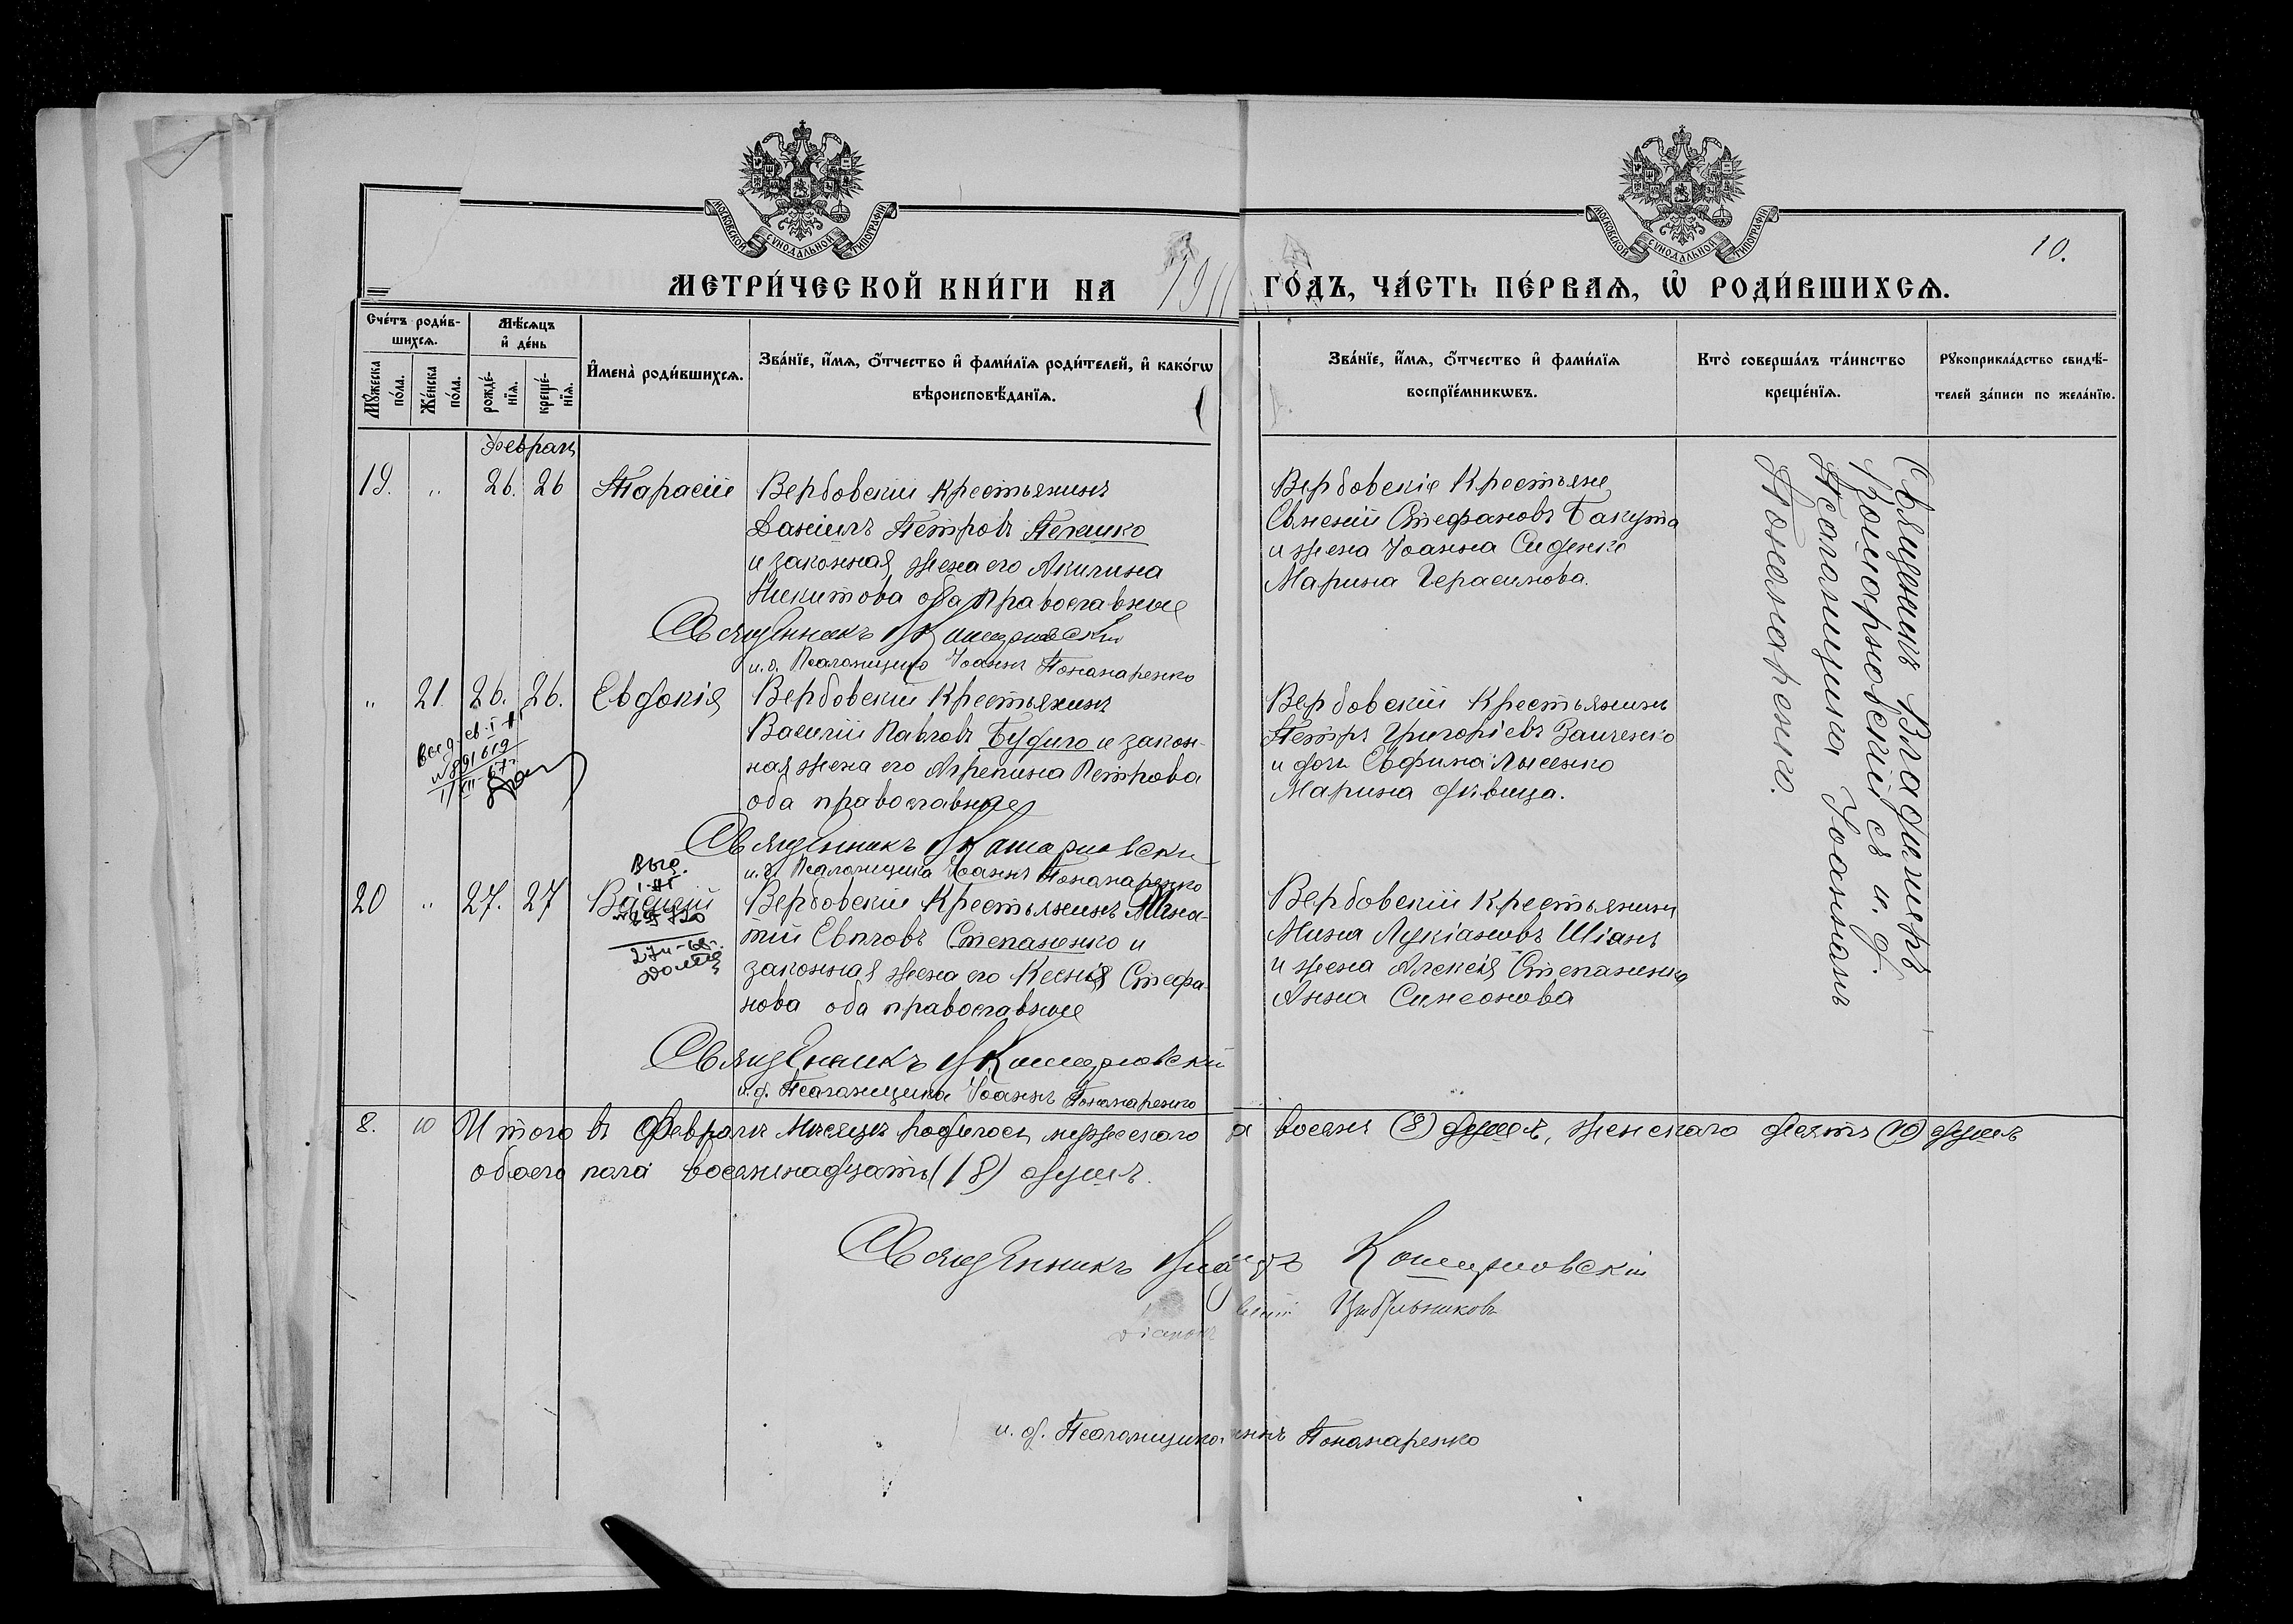 МОСКОВСКОЙ СѴНОДАЛЬНОЙ ТИПОГРАФІИ
МОСКОВСКОЙ СѴНОДАЛЬНОЙ ТИПОГРАФІИ
10.
МЕТРИ́ЧЕСКОЙ КНИ́ГИ НА 1911 ГО́ДЪ, ЧА́СТЬ ПЕ́РВАѦ, Ѡ҆ РОДИ́ВШИХСѦ.
Сче́тъ роди́в-
шихсѧ.
Мꙋ́жеска
по́ла.
Же́нска
по́ла.
Мѣ́сѧцъ
и҆ де́нь
рожде́-
нїѧ.
креще́-
нїѧ.
И҆мена̀ роди́вшихсѧ.
Зва́нїе, и҆́мѧ, ѻ҆́тчество и҆ фами́лїѧ роди́телей, и҆ како́гѡ
вѣроисповѣ́данїѧ.
Зва́нїе, и҆́мѧ, ѻ҆́тчество и҆ фами́лїѧ
воспрїе́мникѡвъ.
Кто̀ соверша́лъ та́инство
креще́нїѧ.
Рꙋкоприкла́дство свидѣ́-
телей за́писи по жела́нїю.
Февраль
19. " 26. 26 Тарасій
Вербовскій Крестьянинъ
Даніилъ Петровъ
и законная жена его Акилина
Никитова оба православные
Священникъ В Кошарновскій
и.д. Псаломщика Іоаннъ Понамаренко
Вербовскіе Крестьяне
Евменій Стефановъ Бакута
и жена Іоанна Сиденко
Марина Герасимова.
" 21. 26. 26. Евдокія
Вербовскій Крестьянинъ
Василій Павловъ Будило и закон-
ная жена его Агрепина Петрова
оба православные
Священникъ В Кошарновскій
и.д. Псаломщика Іоаннъ Понамаренко
Вербовскій Крестьянинъ
Петръ Григоріевъ Заиченко
и дочь Евфима Лысенко
Марина дѣвица.
Выд.
20 " 27. 27 Василій
Вербовскій Крестьянинъ Игна-
тій Евпловъ Степаненко и
законная жена его Ксенія Стефа-
нова оба православные
Священникъ В Кошарновскій
и.д. Псаломщика Іоаннъ Понамаренко
Вербовскій Крестьянинъ
Мина Лукіановъ Шіанъ
и жена Алексія Степаненка
Анна Симеонова
Священникъ Владиміръ
Кошарновскій съ и. д.
Псаломщика Іоанномъ
Понамаренко.
8. 10 Итого въ Февралѣ Месяцѣ родилось мужескаго восемь (8) душъ, женскаго десять (10) душъ
обоего пола восемнадцать (18) душъ.
Священникъ Кошарновскій
Діаконъ
и. д. Псаломщика Понамаренко